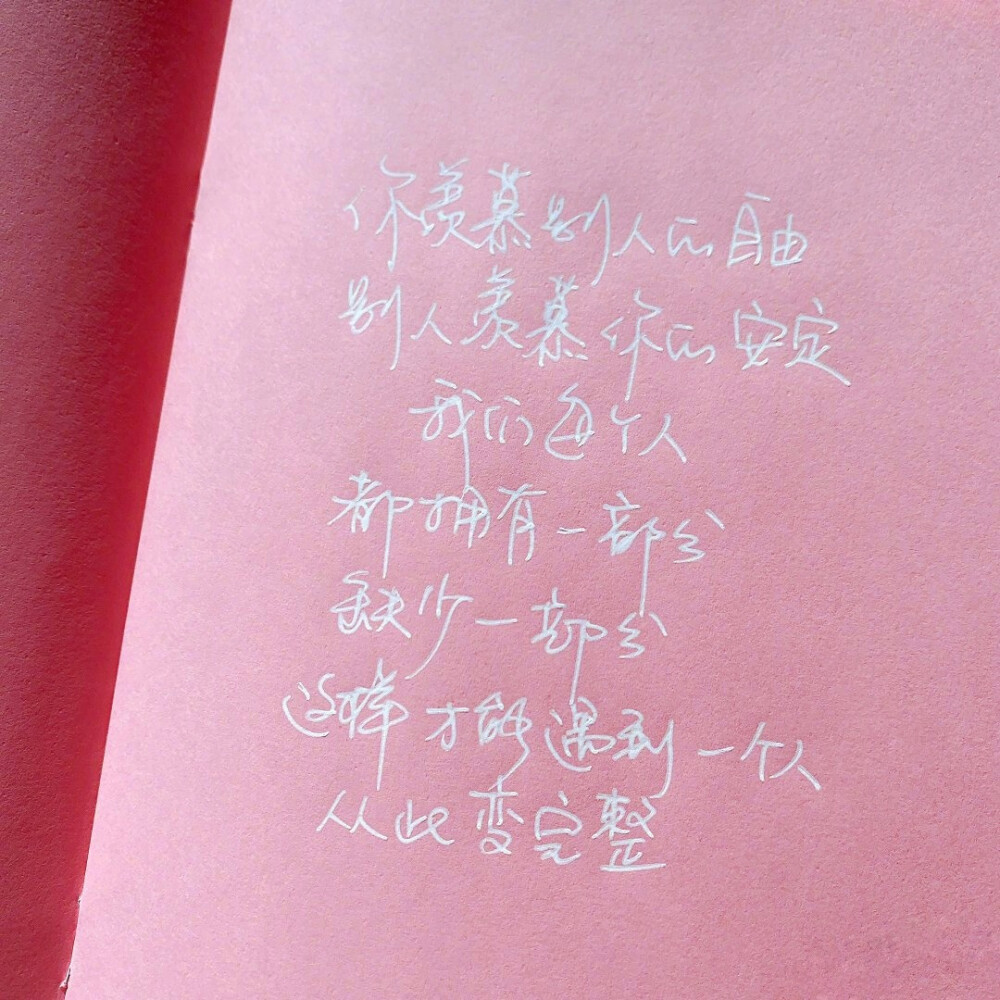 你羡慕别人的自由
别人羡慕你的安定
我们每个人
都拥有一部分
缺少一部分
这样才能遇到一个人
从此变完整